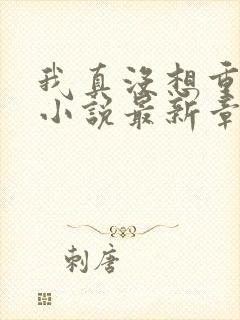 我真没想重
小说最新章
刺唐